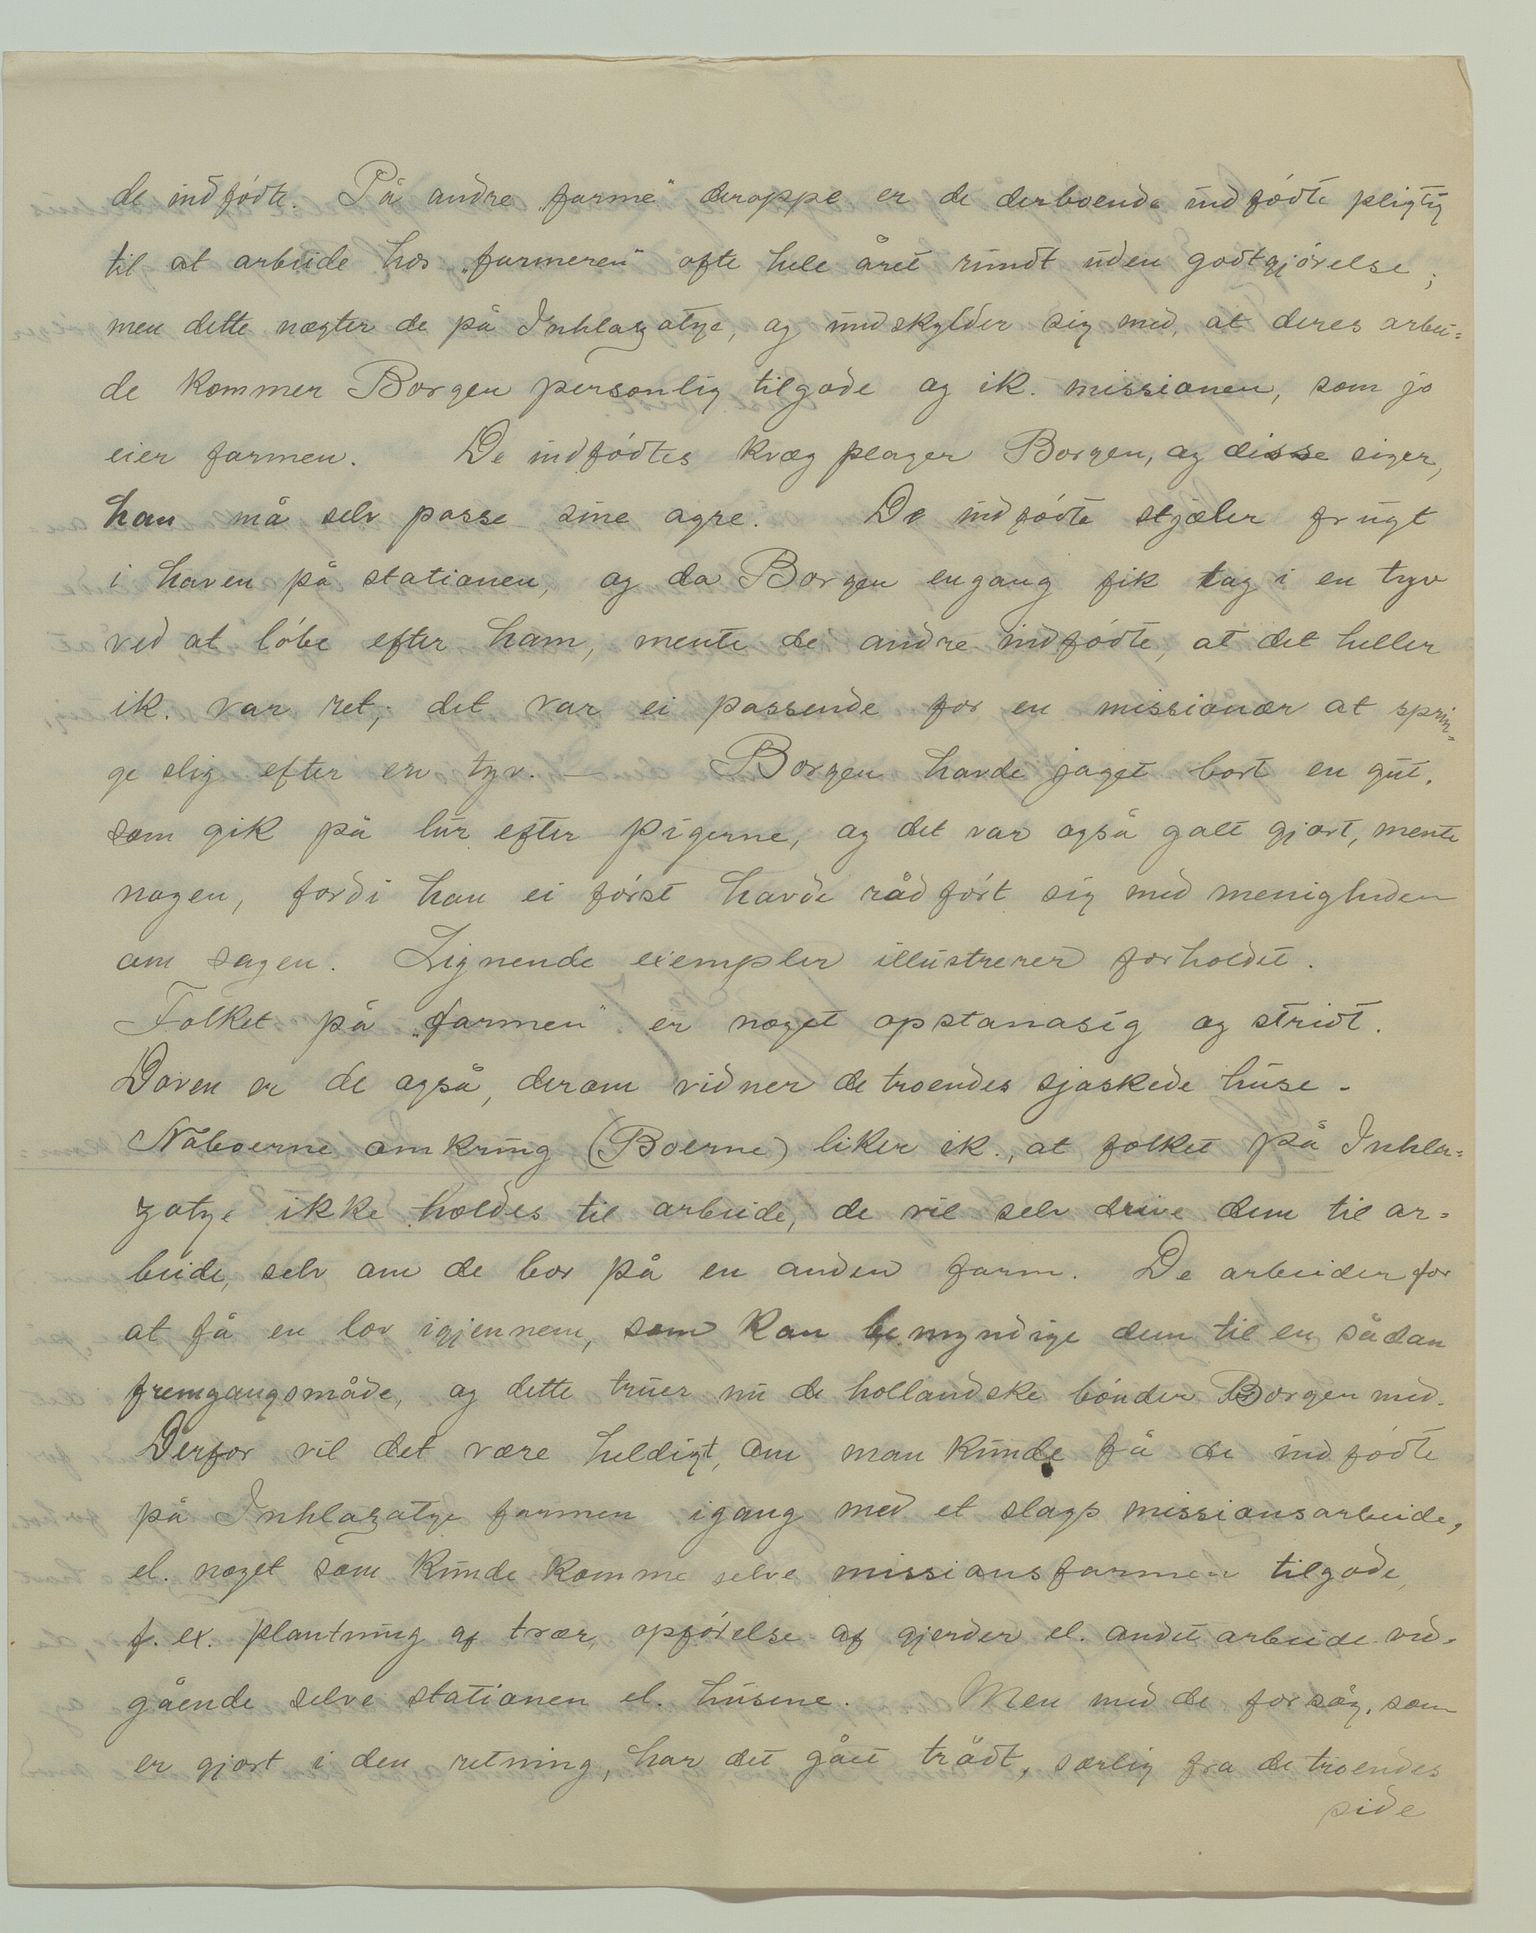 de indfödte. På andre „farme“ deroppe er de derboende indfödte pligtig
til at arbeide hos „farmeren“ ofte hele året rundt uden godtgjörelse;
men dette nægter de på Inhlazatye, og undskylder sig med, at deres arbei=
de kommer Borgen personlig tilgode og ik. missionen, som jo
eier farmen. De indfödtes kvæg plager Borgen, og disse siger,
han må selv passe sine agre. De indfödte stjæler frugt
i haven på stationen, og da Borgen engang fik tag i en tyv
ved at löbe efter ham, mente de andre indfödte, at det heller
ik. var ret; det var ei passende for en missionær at sprin=
ge slig efter en tyv. — Borgen havde jaget bort en gut,
som gik på lur efter pigerne, og det var også galt gjort, mente
nogen, fordi han ei först havde rådfört sig med menigheden
om sagen. Lignende eiempler illustrerer forholdet.
Folket på „farmen“ er noget opstanasig og stridt.
Doven er de også, derom vidner de troendes sjaskede huse.
Naboerne omkring (Boerne) liker ik., at folket på Inhla=
zatye ikke holdes til arbeide, de vil selv drive dem til ar=
beide, selv om de bor på en anden farm. De arbeider for
at få en lov igjennem, som kan bemyndige dem til en sådan
fremgangsmåde, og dette truer nu de hollandske bönder Borgen med.
Derfor vil det være heldigt, om man kunde få de indfödte
på Inhlazatye farmen igang med et slags missionsarbeide,
el. noget som kunde komme selve missionsfarmen tilgode,
f. ex. plantning af trær, opförelse af gjerder el. andet arbeide ved=
gående selve stationen el. husene. Men med de forsög, som
er gjort i den retning, har det gået trådt, særlig fra de troendes
side